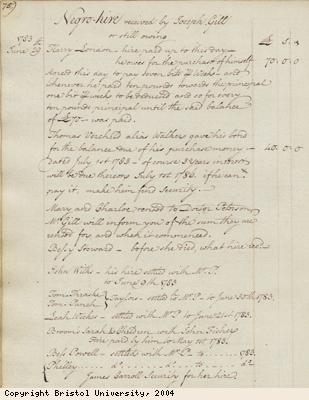 75)
Negro-hire received by Joseph Gill
or still owing
1783 £ s d
June 29 Harry London - hire paid up to this day
he owes for the purchase of himself 70.0.0
agreed this day to pay seven bitts pr week - and
whenever he paid ten pounds towards the principal
one bit pr week to be deducted and so for every
ten pounds principal until the said balance
of £70 - was paid.
Thomas Verchild alias Walker gave his bond
for the balance due of his purchase money - 40.0.0
dated July 1st 1783 - of course 3 years interest
will be due thereon July 1st 1786. if he can't
pay it, make him find Security.
Mary and Sharloe rented to Doctor Peterson
Mr Gill will inform you of the sum they are
rented for, and when it commenced.
Bessy Steward - before she died, what hire rec'd
John Weeks - his hire settled with Mr P.
to June 9th 1783
Tom Peach } Taylors - settled to Mr P - to June 30th 1783.
Leah Weekes - settled with Mr P - to June 21st 1783.
Broom's Sarah & Children with John Fisher
hire paid by him to May 1st 1783.
Bess Powell - settled with Mr P. to 1783.
Phelley do do to do
James Carroll Security for her hire
Copyright Bristol University, 2004